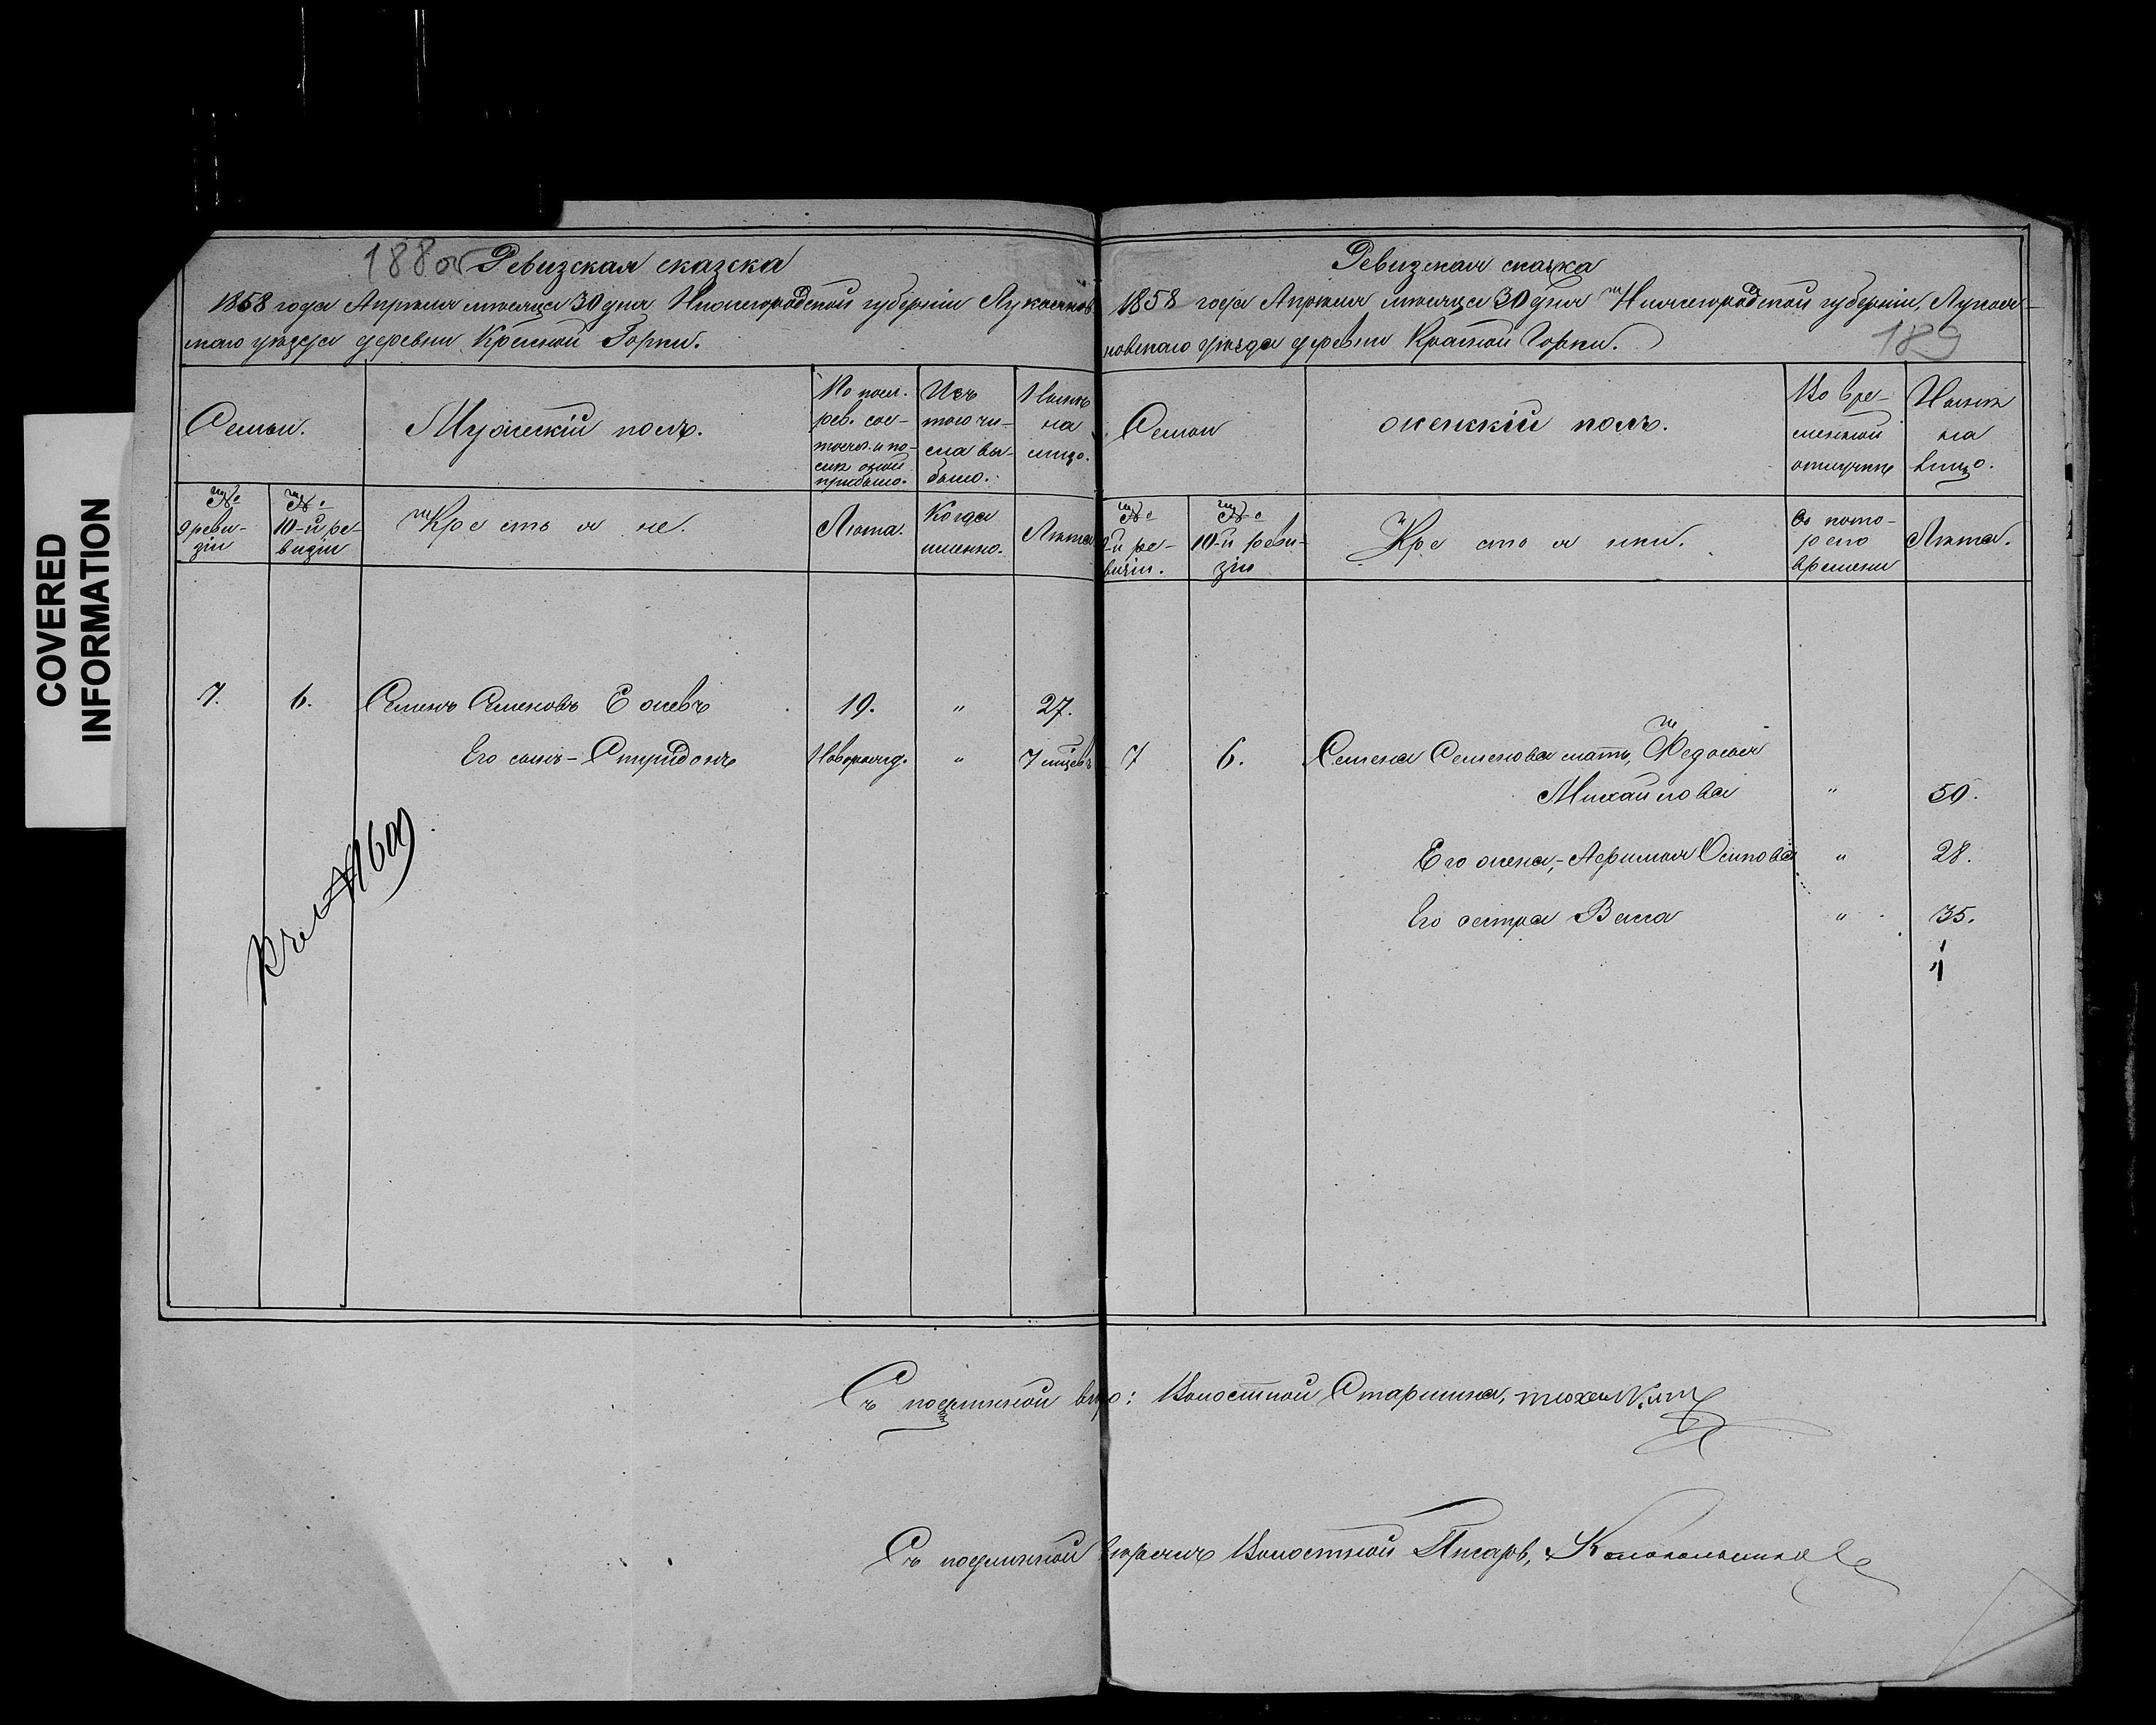 COVERED
INFORMATION
188об Ревизская сказка
1858 года Апрѣля мѣсяца 30 дня Нижегородской губерніи Лукоянов
скаго уѣзда деревни Красной Горки.
Семьи.
Мужескій полъ.
По посл.
рев. сос-
тояло и по-
слѣ оной
прибыло.
Изъ
того чи-
сла вы-
было.
Нынѣ
на
лицо.
№
9 реви-
зіи
№
10-й ре-
визіи
Крестьяне.
Лѣта.
Когда
именно.
Лѣта
7.
6.
Семенъ Семеновъ
19.
"
27.
Его сынъ - Спиридонъ
Новорожд.
"
7 мцевъ
№
Ревизская сказка
1858 года Апрѣля мѣсяца 30 дня Нижегородской губерніи, Лукоя-
новскаго уѣзда деревни Красной Горки.
189
Семьи
женскій полъ.
Во вре-
менной
отлучкѣ
Нынѣ
на
лицо.
№
9-й ре-
визіи.
№
10-й реви-
зіи
Крестьянки.
Съ кото-
раго
времени
Лѣта.
7
6.
Семена Семенова мать, Федосья
Михайлова
"
50.
Его жена, - Осипова
"
28.
Его сестра Васса
"
35.
Съ подлинной вѣрно: Волостной Старшина,
Съ подлинной вѣрилъ Волостной Писарь, Колокольниковъ